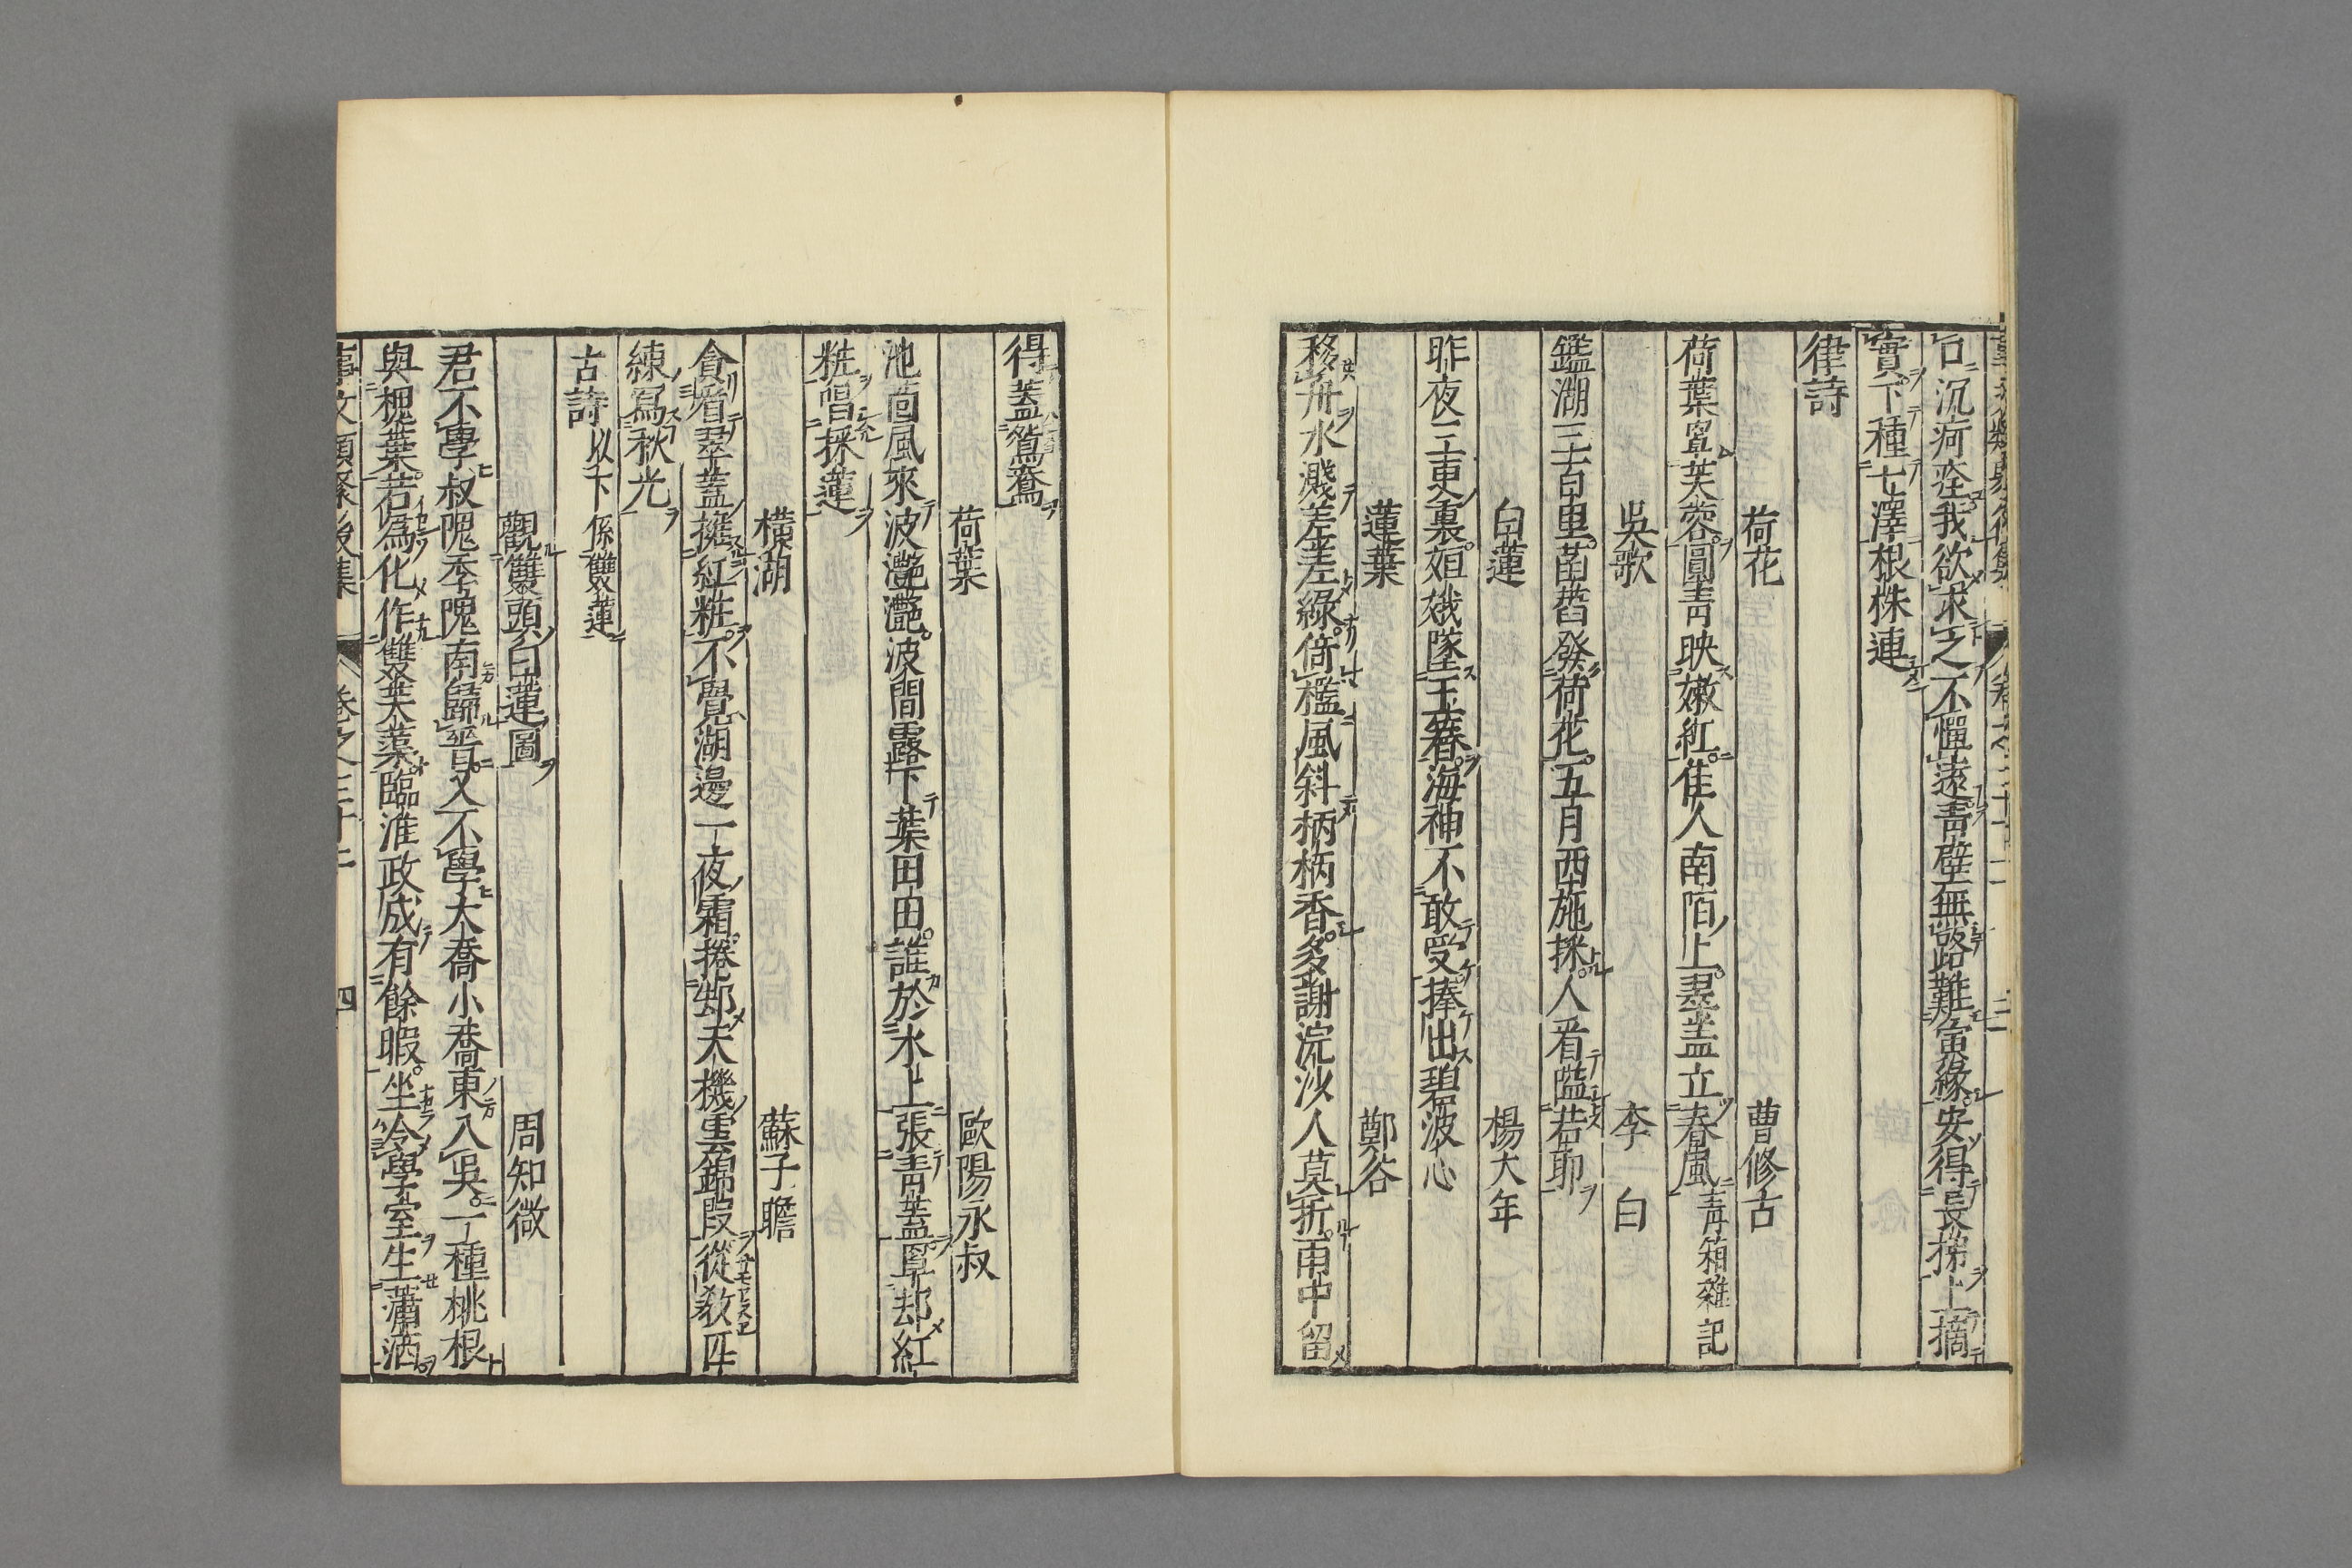 口沉疴痊我欲求之不憚遠青壁無路難夤緣安得長梯上摘
實下種七澤根株連
律詩
荷花　曹修古
荷葉罩芙蓉圓青映嫩紅佳人南陌上翠盖立春風青箱雜記
吳歌　李白
鑑湖三百里菡萏發荷花五月西施採人看隘若耶
白蓮　楊大年
昨夜三更裏姮娥墜玉簪海神不敢受捧出碧波心
蓮葉　鄭谷
移舟水濺差差綠倚檻風斜柄柄香多謝浣沙人莫折雨中留
得蓋鴛鴦
荷葉　歐陽永叔
池面風來波灔灔波間露下葉田田誰於水上張青蓋罩却紅
粧唱採蓮
橫湖　蘇子瞻
貪看翠蓋擁紅粧不覺湖邊一夜霜捲却天機雲錦段從教匹
練寫秋光
古詩以下係雙蓮
觀雙頭白蓮圖　周知微
君不學叔隗季隗南歸晉又不學大喬小喬東入吳一種桃根
與桃葉若爲化作雙芙蕖臨淮政成有餘暇坐令學室生蕭洒
事文類聚後集　卷之三十二　四